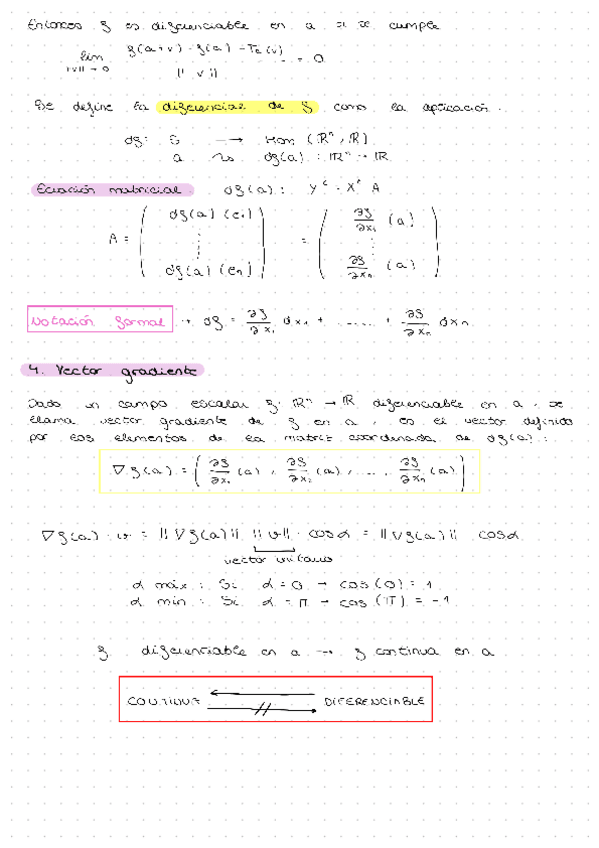 Entonces f es diferenciable en a si se cumple
lim f(a+v) - f(a) - Ta(v) / ||v|| = 0
||v|| → 0
Se define la diferencial de f como la aplicación.
df: G → Hom (ℝⁿ, ℝ)
a ⇝ df(a) : ℝⁿ → ℝ
Ecuación matricial df(a): Yᵗ = Xᵗ A
A = ( df(a) (e₁) ⋮ df(a) (eₙ) ) = ( ∂f/∂x₁ (a) ⋮ ∂f/∂xₙ (a) )
Notación formal → df = ∂f/∂x₁ dx₁ + ..... + ∂f/∂xₙ dxₙ
4. Vector gradiente
Dado un campo escalar f: ℝⁿ → ℝ diferenciable en a, se
llama vector gradiente de f en a, es el vector definido
por los elementos de la matriz coordenada de df(a):
∇f(a) = ( ∂f/∂x₁ (a), ∂f/∂x₂ (a), ..., ∂f/∂xₙ (a) )
∇f(a) · v = ||∇f(a)|| ||v|| · cos α = ||∇f(a)|| cos α
vector unitario
α máx : Si α = 0 → cos (0) = 1
α min : Si α = π → cos (π) = -1
f diferenciable en a → f continua en a
CONTINUA ⟵ DIFERENCIABLE